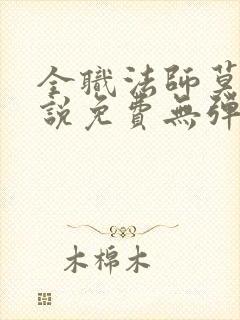 全職法師莫
說免費無彈
木棉木